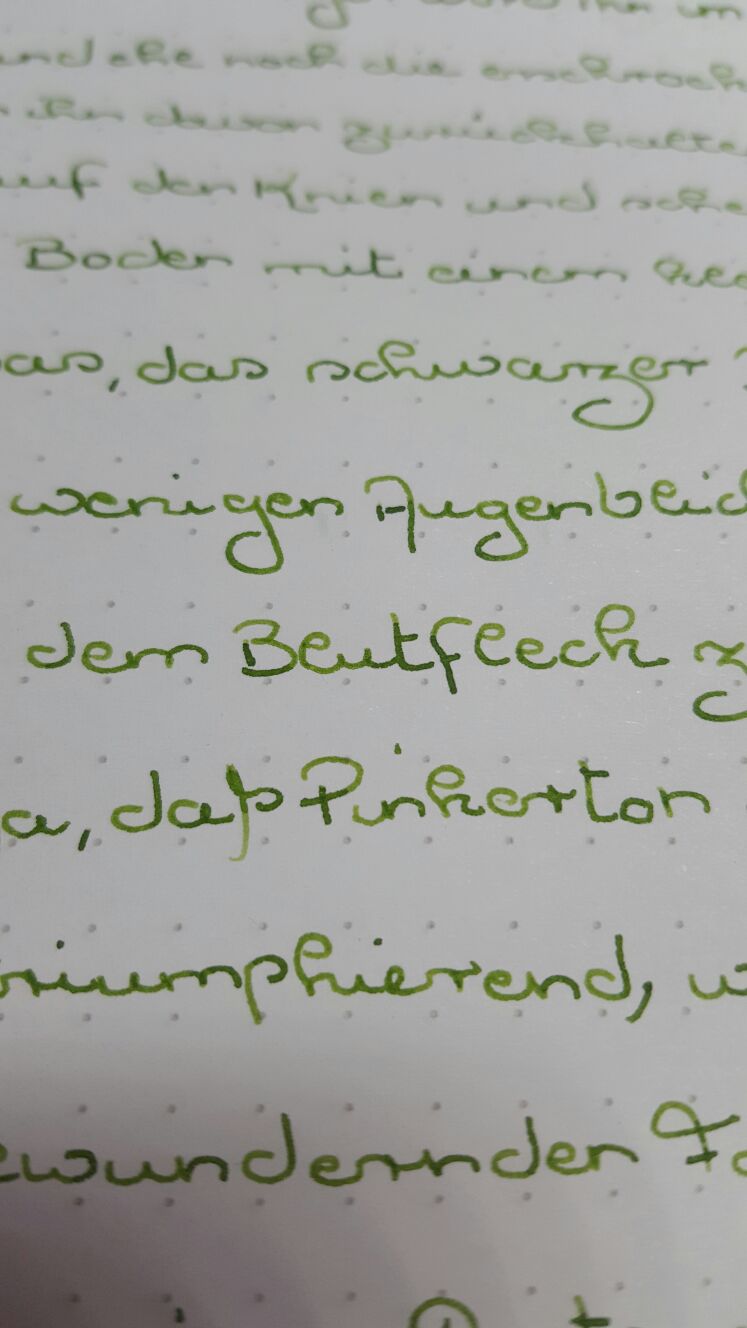 ihn um
und ehe noch die erschrock
ihn davon zurückhalte
auf den Knien und sche
Boden mit einem
as, das schwarzer
wenigen Augenblic
dem Blutfleck z
a, daß Pinkerton
triumphierend, w
ewundernder Fa